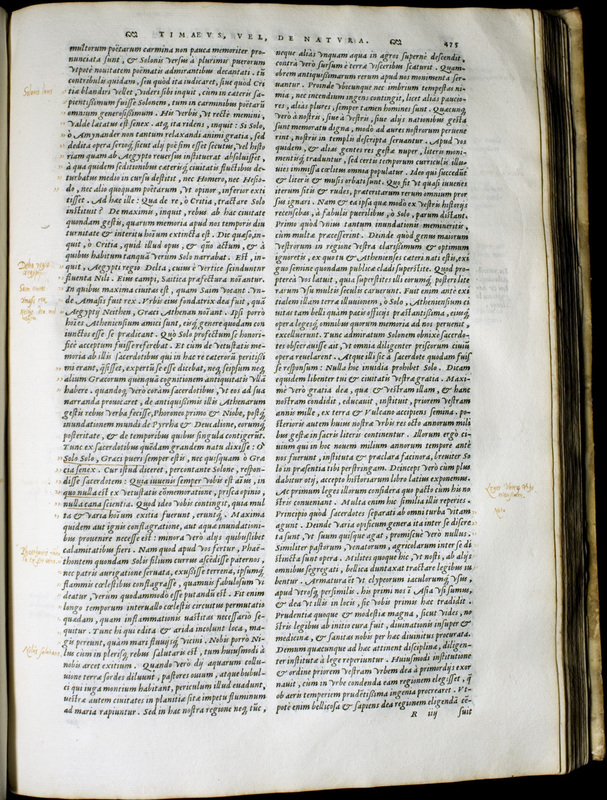 TIMAEVS, VEL, DE NATVRA. 475
multorum poëtarum carmina non pauca memoriter pro-
nunciata sunt, & Solonis versus à plurimis puerorum
utpote nouitatem poëmatis admirantibus decantati. tũ
contribulis quidam, seu quòd ita iudicaret, siue quòd Cri
tiæ blandiri vellet, videri sibi inquit, cùm in cæteris sa-
pientissimum fuisse Solonem, tum in carminibus poëtarũ
omnium generosissimum. His verbis, vt rectè memini,
valde lætatus est senex. atq; ita ridens, inquit: Si Solo,
ô Amynander non tantum relaxandi animi gratia, sed
dedita opera seriòq; sicut alij poësim esset secutus, vel histo
riam quam ab Aegypto reuersus instituerat absoluisset,
à qua quidem seditionibus cæterisq; ciuitatis fluctibus de-
turbatus medio in cursu destitit, nec Homero, nec Hesio-
do, nec alio quoquam poëtarum, vt opinor, inferior exti
tisset. Ad hæc ille: Qua de re, ô Critia, tractare Solo
instituit? De maximis, inquit, rebus ab hac ciuitate
quondam gestis, quarum memoria apud nos temporis diu
turnitate & interitu hominum extincta est. Dic quæso, in-
quit, ô Critia, quid illud opus, & quo actum, & à
quibus habitum tanquã verum Solo narrabat. Est, in-
quit, Aegypti regio Delta, cuius è vertice scinduntur
fluenta Nili. Eius campi, Saitica præfectura nominatur.
In quibus maxima ciuitas est, quam Saim vocant. Vn-
de Amasis fuit rex. Vrbis eius fondatrix dea fuit, quã
Aegyptij Neithen, Græci Athenan nominant. Ipsi porrò
homines Atheniensium amici sunt, eiusq; genere quodam eos
iunctos esse se prædicant. Quò Solo profectus se honori-
ficè acceptum fuisse referebat. Et cùm de vetustatis me-
moria ab illis sacerdotibus qui in hac re cæterorũ peritissi
mi erant, quæsisset, expertũ se esse dicebat, neq; seipsum neq;
alium Græcorum quenquã cognitionem antiquitatis vllã
habere. quandoq; verò coràm sacerdotibus, vt eos ad sua
narranda prouocaret, de antiquissimis illis Athenarum
gestis rebus verba fecisse, Phoroneo primo & Niobe, postq;
inundationem mundi de Pyrrha & Deucalione, eorumq;
posteritate, & de temporibus quibus singula contigerint.
Tunc ex sacerdotibus quẽdam grandem natu dixisse: O
Solo Solo, Græci pueri semper estis, nec quisquam è Græ
cia senex. Cur istud diceret, percontante Solone, respon-
disse sacerdotem: Quia iuuenis semper vobis est aĩus, in
quo nulla est ex vetustatis cõmemoratione, prisca opinio,
nulla cana scientia. Quod ideo vobis contingit, quia mul
ta & varia hominum exitia fuerunt, eruntq;. Maxima
quidem aut ignis conflagratione, aut aquæ inundationi-
bus prouenire necesse est: minora verò alijs quibuslibet
calamitatibus fieri. Nam quod apud vos fertur, Phaë-
thontem quondam Solis filium currus ascẽdisse paternos,
nec patris aurigatione seruata, exussisse terrena, ipsumq;
flammis cœlestibus conflagrasse, quamuis fabulosum vi
deatur, verum quodammodo esse putandũ est. Fit enim
longo temporum interuallo cœlestis circuitus permutatio
quædam, quam inflammationis vastitas necessariò se-
quitur. Tunc hi qui edita & arida incolunt loca, ma-
gis pereunt, quàm mari fluuijsq; vicini. Nobis porrò Ni-
lus cùm in plerisq; rebus salutaris est, tum huiusmodi à
nobis arcet exitium. Quando verò dij aquarum collu-
uione terræ sordes diluunt, pastores ouium, atque bubul-
ci qui iuga montium habitant, periculum illud euadunt,
vestræ autem ciuitates in planitie sitæ impetu fluminum
ad maria rapiuntur. Sed in hac nostra regione neq; tũc,
neque aliàs vnquam aqua in agros supernè descendit,
contrà verò sursum è terræ visceribus scaturit. Quam-
obrem antiquissimarum rerum apud nos monumenta ser-
uantur. Proinde vbicunque nec imbrium tempestas ni-
mia, nec incendium ingens contingit, licet aliàs paucio-
res, aliàs plures, semper tamen homines sunt. Quæcunq;
verò à nostris, siue à vestris, siue alijs nationibus gesta
sunt memoratu digna, modò ad aures nostrorum peruene
rint, nostris in templis descripta seruantur. Apud vos
quidem, & alias gentes res gesta nuper, literis moni-
mentisq; traduntur, sed certis temporum curriculis illu-
uies immissa cœlitus omnia populatur. Ideo qui succedũt
& literis & musis orbati sunt. Quo fit vt quasi iuuenes
iterum sitis & rudes, præteritarum rerum omnium pror
sus ignari. Nam & ea ipsa quæ modò ex vestris historijs
recensebas, à fabulis puerilibus, ô Solo, parum distant.
Primò quòd vnius tantum inundationis memineritis,
cùm multæ præcesserint. Deinde quòd genus maiorum
vestrorum in regione vestra clarissimum & optimum
ignoretis, ex quo tu & Athenienses cæteri nati estis, exi-
guo semine quondam publicæ cladi superstite. Quod pro-
pterea vos latuit, quia superstites illi eorumq; posteri lite
rarum vsu multis seculis caruerunt. Fuit enim ante exi
tialem illam terræ illuuionem, ô Solo, Atheniensium ci
uitas tam belli quàm pacis officijs præstantissima, eiusq;
opera legesq; omnibus quorum memoria ad nos peruenit,
excelluerunt. Tunc admiratum Solonem obnixè sacerdo-
tes obsecrauisse ait, vt omnia diligenter priscorum ciuiũ
opera reuelarent. Atque illi sic à sacerdote quodam fuis-
se responsum: Nulla hîc inuidia prohibet Solo. Dicam
equidem libenter tui & ciuitatis vestræ gratia. Maxi-
mè verò gratia deæ, quæ & vestram illam, & hanc
nostram condidit, educauit, instituit, priorem vestram
annis mille, ex terra & Vulcano accipiens semina. po-
steriorem autem huius nostræ vrbis res octo annorum mili
bus gestas sacris literis continentur. Illorum ergo ci-
uium qui in hoc nouem millium annorum tempore ante
nos fuerunt, instituta & præclara facinora, breuiter So
lo in præsentia tibi perstringam. Deinceps verò cùm plus
dabitur otij, accepto historiarum libro latius exponemus.
Ac primum leges illorum considera quo pacto cum his no
stris conueniant. Multa enim hîc similia illis reperies.
Principiò quòd sacerdotes separati ab omni turba vitam
agunt. Deinde varia opificum genera ita inter se discre
ta sunt, vt suum quisque agat, promiscuè verò nullus.
Similiter pastorum, venatorum, agricolarum inter se di
stincta sunt opera. Milites quoque hîc, vt nosti, ab alijs
omnibus segregati, bellica duntaxat tractare legibus iu
bentur. Armaturæ &t clypeorum iaculorumq; vsus,
apud vtrosq; persimilis. his primi nos ĩ Asia vsi sumus,
& dea vt illis in locis, sic vobis primis hæc tradidit.
Prudentiæ quoque & modestiæ magna, sicut vides, no
stris legibus ab initio cura fuit, diuinationis insuper &
medicinæ, & sanitas nobis per hæc diuinitus procurata.
Demum quæcunque ad hæc attinent disciplinæ, diligen-
ter instituta à lege reperiuntur. Huiusmodi institutione
& ordine priorem vestram vrbem dea à primordijs exor
nauit, cùm in vrbe condenda eam regionem elegisset, q̃
ob aëris temperiem prudẽtissima ingenia procrearet. Vt-
pote enim bellicosa & sapiens dea regionem eligendã cẽ-
R iij suit